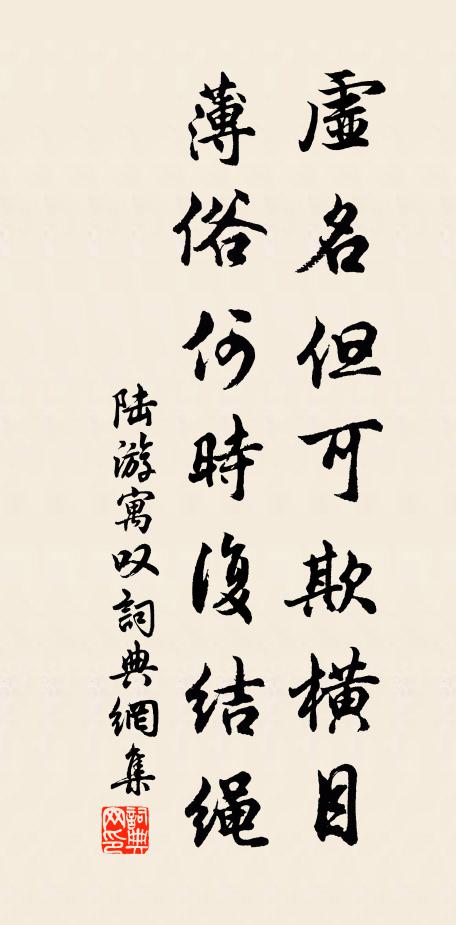 虛名但可欺橫目
薄俗何時復结绳
陆游寓叹詞典網集
詞典网印